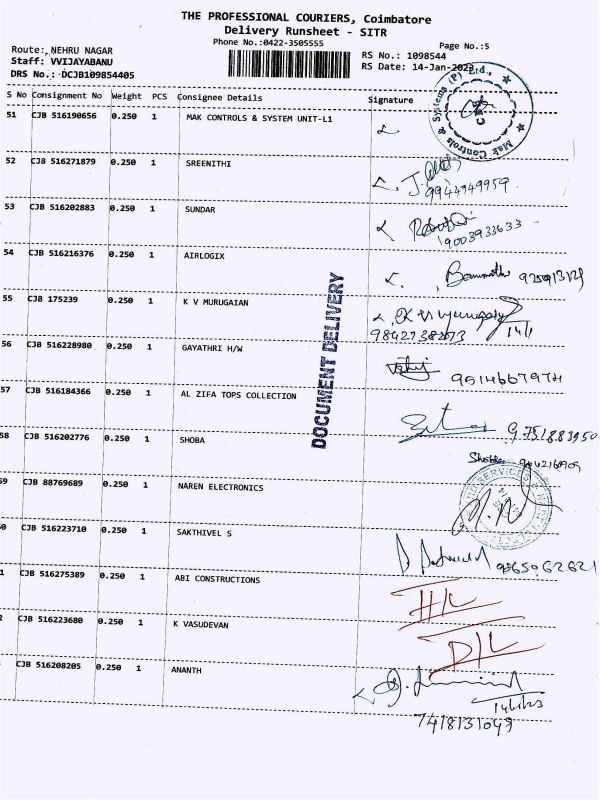 THE PROFESSIONAL COURIERS, Coimbatore
Delivery Runsheet - SITR
Phone No.:0422-3505555
Page No.:5
Route: NEHRU NAGAR
Staff: VVIJAYABANU
DRS No.: DCJB109854405
RS No.: 1098544
RS Date: 14-Jan-2023
S No Consignment No Weight PCS Consignee Details Signature
51 CJB 516190656 0.250 1 MAK CONTROLS & SYSTEM UNIT-L1
Mak Controls & Systems (P) Ltd.,
52 CJB 516271879 0.250 1 SREENITHI
9944949959
53 CJB 516202883 0.250 1 SUNDAR
9003933633
54 CJB 516216376 0.250 1 AIRLOGIX
55 CJB 175239 0.250 1 K V MURUGAIAN
14/1
DOCUMENT DELIVERY
56 CJB 516228980 0.250 1 GAYATHRI H/W
9514667974
57 CJB 516184366 0.250 1 AL ZIFA TOPS COLLECTION
9751883950
58 CJB 516202776 0.250 1 SHOBA
Shobha
59 CJB 88769689 0.250 1 NAREN ELECTRONICS
0 CJB 516223710 0.250 1 SAKTHIVEL S
9865962621
1 CJB 516275389 0.250 1 ABI CONSTRUCTIONS
H/L
2 CJB 516223680 0.250 1 K VASUDEVAN
D/L
CJB 516208205 0.250 1 ANANTH
14/1/23
7418131049